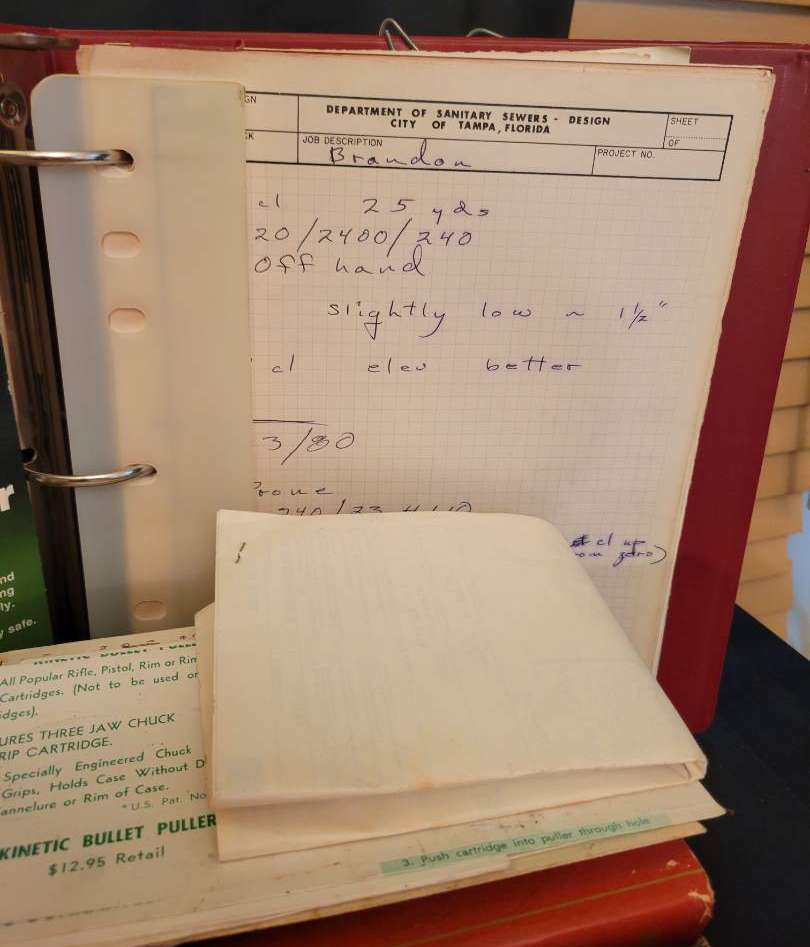 GN
DEPARTMENT OF SANITARY SEWERS - DESIGN
CITY OF TAMPA, FLORIDA
SHEET
OF
JOB DESCRIPTION
Brandon
PROJECT NO.
cl 25 yds
20/2400/240
Off hand
slightly low ~ 1 1/2"
cl elev better
3/80
cl up
zero)
nd
ng
ly.
y safe.
All Popular Rifle, Pistol, Rim or Rim
Cartridges. (Not to be used or
idges).
URES THREE JAW CHUCK
RIP CARTRIDGE.
Specially Engineered Chuck
Grips, Holds Case Without D
annelure or Rim of Case.
*U.S. Pat. No
KINETIC BULLET PULLER
$12.95 Retail
3. Push cartridge into puller through hole